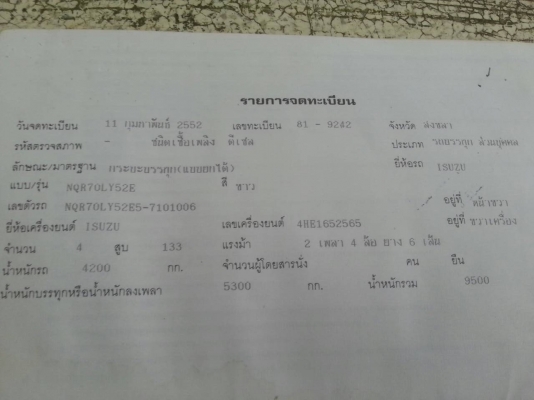 รายการจดทะเบียน
วันจดทะเบียน 11 กุมภาพันธ์ 2552 เลขทะเบียน 81 - 9242 จังหวัด สงขลา
รหัสตรวจสภาพ - ชนิดเชื้อเพลิง ดีเซล ประเภท รถบรรทุก ส่วนบุคคล
ลักษณะ/มาตรฐาน กระบะบรรทุก(แบบยกได้) ยี่ห้อรถ ISUZU
แบบ/รุ่น NQR70LY52E สี ขาว
เลขตัวรถ NQR70LY52E5-7101006 อยู่ที่ หน้าขวา
ยี่ห้อเครื่องยนต์ ISUZU เลขเครื่องยนต์ 4HE1652565 อยู่ที่ ขวาเครื่อง
จำนวน 4 สูบ 133 แรงม้า 2 เพลา 4 ล้อ ยาง 6 เส้น
น้ำหนักรถ 4200 กก. จำนวนผู้โดยสารนั่ง คน ยืน
น้ำหนักบรรทุกหรือน้ำหนักลงเพลา 5300 กก. น้ำหนักรวม 9500